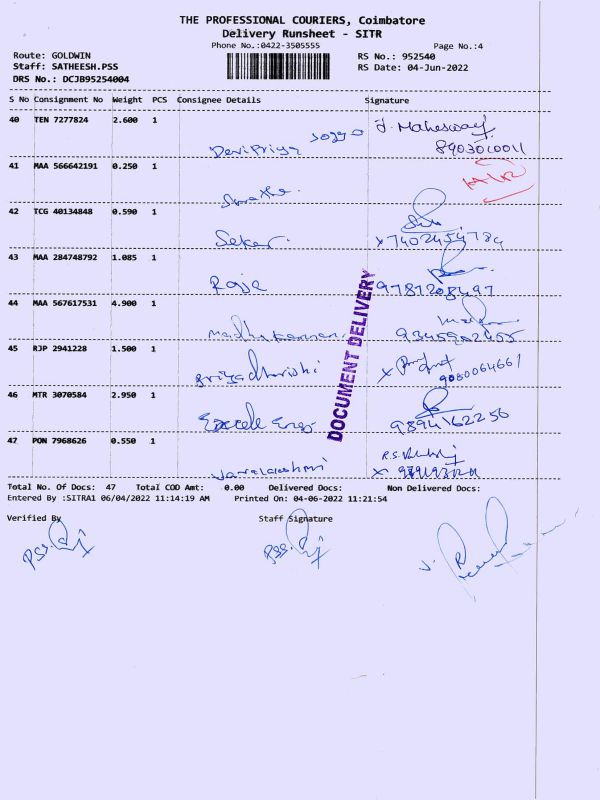 THE PROFESSIONAL COURIERS, Coimbatore
Delivery Runsheet - SITR
Phone No.:0422-3505555 Page No.:4
Route: GOLDWIN RS No.: 952540
Staff: SATHEESH.PSS RS Date: 04-Jun-2022
DRS No.: DCJB95254004
S No Consignment No Weight PCS Consignee Details Signature
40 TEN 7277824 2.600 1
Devipriya J. Maheswary
8903010011
41 MAA 566642191 0.250 1
42 TCG 40134848 0.590 1
Sekar x 7402454784
43 MAA 284748792 1.085 1
Raja 9787208497
44 MAA 567617531 4.900 1
9345902455
45 RJP 2941228 1.500 1
Priyadharshi x
9080064661
46 MTR 3070584 2.950 1
9894162256
47 PON 7968626 0.550 1
Varalakshmi
DOCUMENT DELIVERY
Total No. Of Docs: 47 Total COD Amt: 0.00 Delivered Docs: Non Delivered Docs:
Entered By :SITRA1 06/04/2022 11:14:19 AM Printed On: 04-06-2022 11:21:54
Verified By Staff Signature
PSS. PSS.